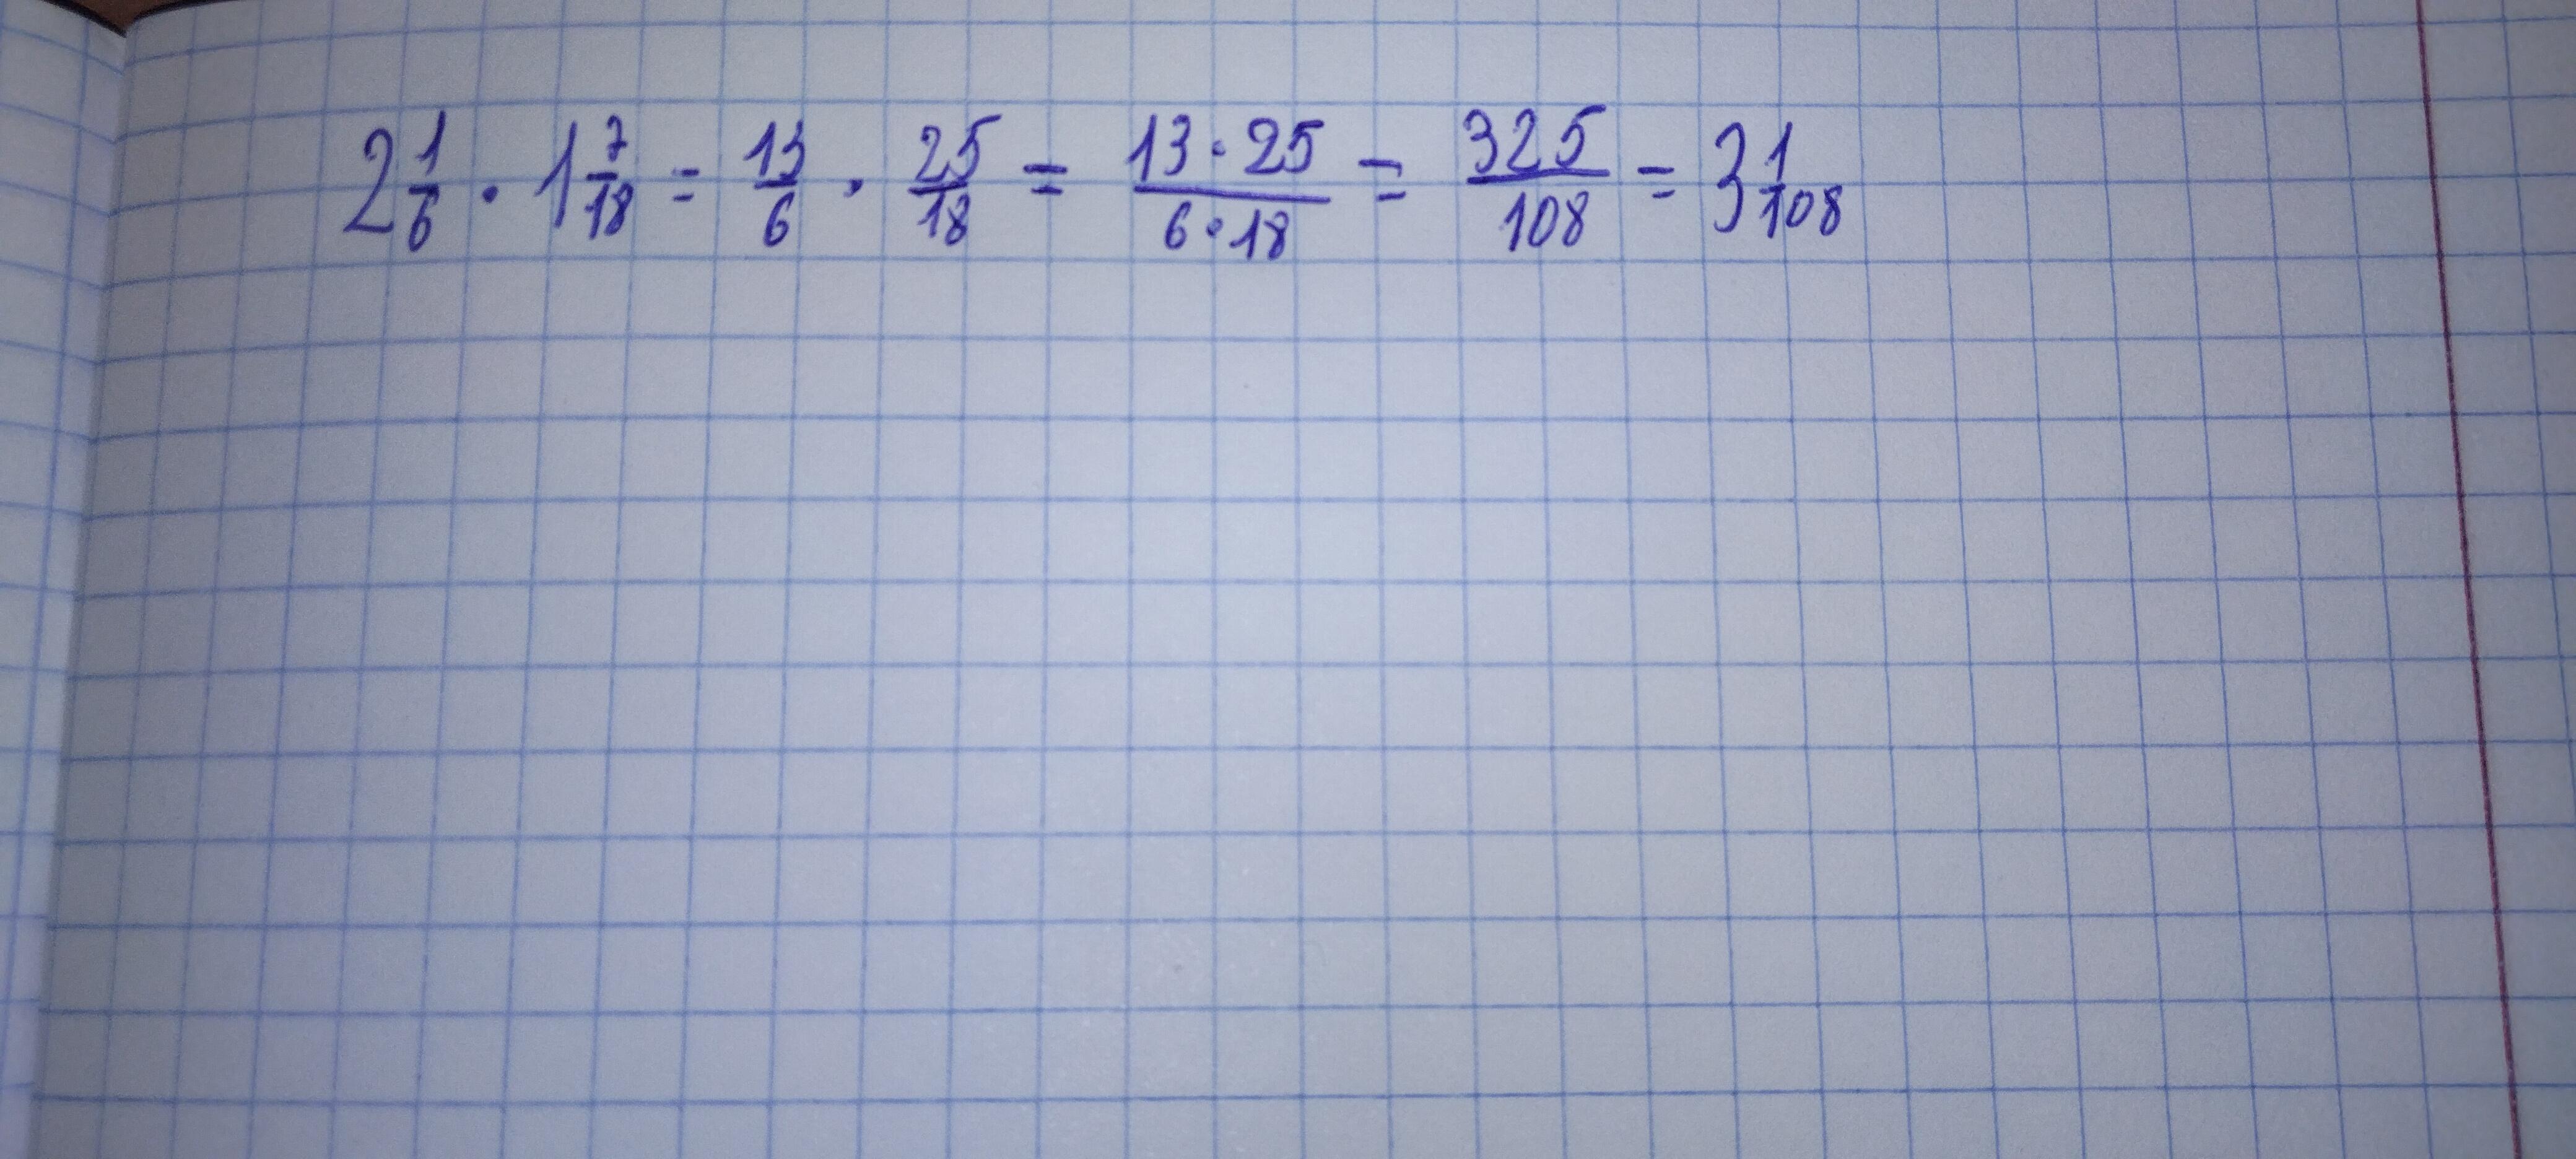 2 1/6 · 1 7/18 = 13/6 · 25/18 = 13·25/6·18 = 325/108 = 3 1/108